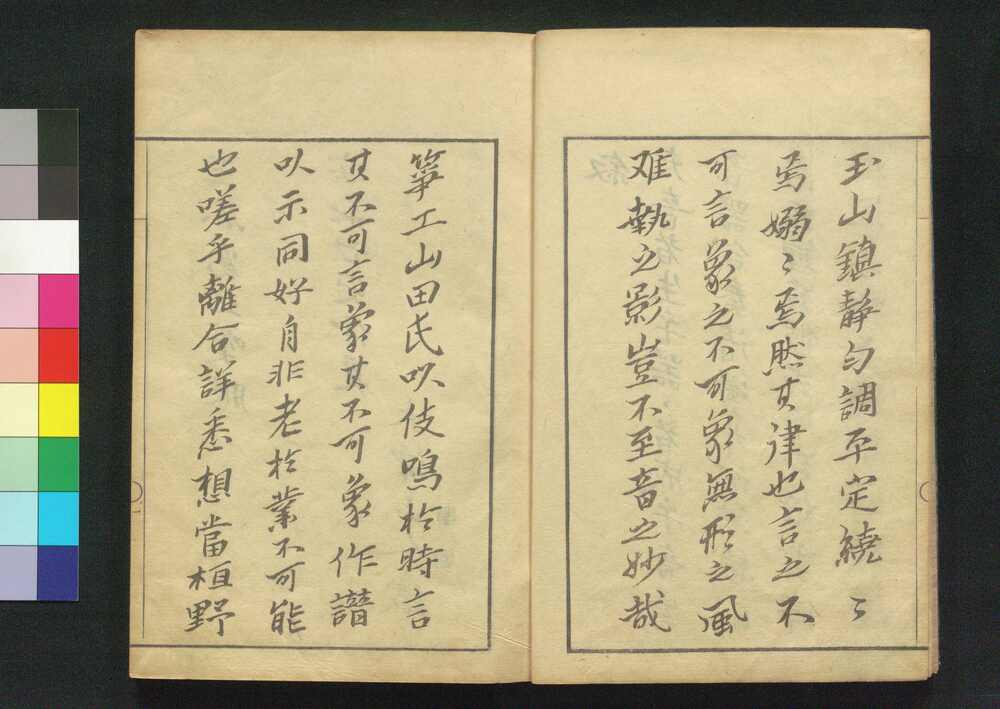 玉山鎮静勻調平定繞〻
焉嫋〻焉然其律也言之不
可言象之不可象無形之風
难執之影豈不至音之妙哉
箏工山田氏以伎鳴於時言
其不可言象其不可象作譜
以示同好自非老於業不可能
也嗟乎離合詳悉想當桓野